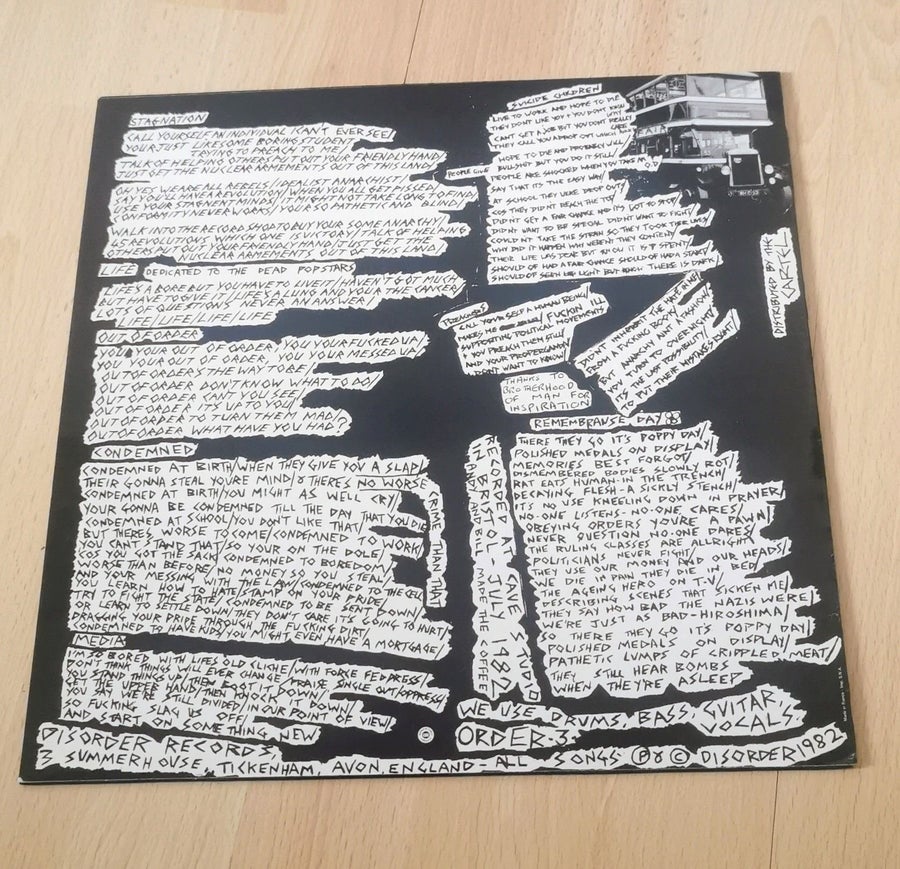 STAGNATION
CALL YOURSELF AN INDIVIDUAL I CAN'T EVER SEE/
YOUR JUST LIKE SOME BORING STUDENT
TRYING TO PREACH TO ME/
TALK OF HELPING OTHERS PUT OUT YOUR FRIENDLY HAND/
JUST GET THE NUCLEAR ARMEMENTS OUT OF THIS LAND/
OH YES WE ARE ALL REBELS/IDEALIST ANARCHIST/
SAY YOU'LL HAVE A REVOLUTION WHEN YOU ALL GET PISSED/
USE YOUR STAGNENT MINDS/IT MIGHT NOT TAKE LONG TO FIND/
CONFORMITY NEVER WORKS/YOUR SO PATHETIC AND BLIND/
WALK INTO THE RECORD SHOP TO BUY YOUR SOME ANARCHY/
45 REVOLUTIONS WHICH ONE IS VICTORY/TALK OF HELPING
OTHERS PUT OUT YOUR FRIENDLY HAND/JUST GET THE
NUCLEAR ARMEMENTS OUT OF THIS LAND/
LIFE DEDICATED TO THE DEAD POPSTARS
LIFE'S A BORE BUT YOU HAVE TO LIVE IT/HAVEN'T GOT MUCH
BUT HAVE TO GIVE IT/LIFE'S A LUNG AND YOUR THE CANCER/
LOTS OF QUESTIONS NEVER AN ANSWER/
LIFE/LIFE/LIFE/LIFE
OUT OF ORDER
YOU YOUR OUT OF ORDER, YOU YOUR FUCKED UP/
YOU YOUR OUT OF ORDER, YOU YOUR MESSED UP/
OUT OF ORDER'S THE WAY TO BE/
OUT OF ORDER DON'T KNOW WHAT TO DO/
OUT OF ORDER CAN'T YOU SEE/
OUT OF ORDER ITS UP TO YOU/
OUT OF ORDER TO WANT THEM HAD/
OUT OF ORDER WHAT HAVE YOU HAD?
CONDEMNED
CONDEMNED AT BIRTH/WHEN THEY GIVE YOU A SLAP/
THEIR GONNA STEAL YOU'RE MIND/& THERE'S NO WORSE
CRIME THAN THAT
CONDEMNED AT BIRTH/YOU MIGHT AS WELL CRY/
YOUR GONNA BE CONDEMNED TILL THE DAY THAT YOU DIE
CONDEMNED AT SCHOOL/YOU DON'T LIKE THAT/
BUT THERES WORSE TO COME/CONDEMNED TO WORK/
YOU CAN'T STAND THAT/SO YOUR ON THE DOLE/
COS YOU GOT THE SACK/CONDEMNED TO BOREDOM
WORSE THAN BEFORE/NO MONEY SO YOU STEAL/
AND YOUR MESSING WITH THE LAW/CONDEMNED TO THE CELL
LEARN HOW TO HATE/STAMP ON YOUR PRIDE/
TRY TO FIGHT THE STATE/CONDEMNED TO BE SENT DOWN/
OR LEARN TO SETTLE DOWN/THEY DON'T CARE IT'S GOING TO HURT/
DRAGGING YOUR PRIDE THROUGH THE FUCKING DIRT/
CONDEMNED TO HAVE KIDS/YOU MIGHT EVEN HAVE A MORTGAGE/
MEDIA
I'M SO BORED WITH LIFES OLD CLICHE/WITH FORCE FED PRESS/
DON'T THINK THINGS WILL EVER CHANGE/PRAISE SINGLE OUT/OPPRESS/
YOU STAND THINGS UP/THEN BOOT IT DOWN/
GET THE UPPER HAND/THEN KNOCK IT DOWN/
YOU SAY WE'RE STILL DIVIDED/IN OUR POINT OF VIEW/
SO FUCKING SLAG US OFF/
AND START ON SOMETHING NEW
SUICIDE CHILDREN
LIVE TO WORK AND HOPE TO DIE
THEY DON'T LIKE YOU & YOU DON'T KNOW
CAN'T GET A JOB BUT YOU DON'T REALLY CARE
THEY CALL YOU A MISFIT OUT WHICH
HOPE TO DIE AND PROVERBS WILL
PEOPLE GIVE BULLSHIT BUT YOU DO IT STILL/
PEOPLE ARE SHOCKED WHEN YOU TAKE AN O.D
SAY THAT IT'S THE EASY WAY
AT SCHOOL THEY WERE DROP OUT
COS THEY DIDN'T REACH THE TOP
DIDN'T GET A FAIR CHANCE AND IT'S GOT TO STOP/
DIDN'T WANT TO BE SPECIAL DIDN'T WANT TO FIGHT/
COULDN'T TAKE THE STRAIN SO THEY TOOK THEIR LIFE
WHY DID IT HAPPEN WHY WEREN'T THEY CONTENT/
THEIR LIFE WAS DEAR BUT KNOW IT IS SPENT/
SHOULD OF HAD A FAIR CHANCE SHOULD OF HAD A START/
SHOULD OF SEEN LIGHT BUT KNOW THERE IS DARK
DISTRIBUTED BY THE CARTEL
PREACHERS
CALL YOURSELF A HUMAN BEING/
MAKES ME FUCKIN ILL
SUPPOSITING POLITICAL MOVEMENTS
& YOU PREACH THEM STILL/
AND YOUR PROPERGANDA
DON'T WANT TO KNOW/
DIDN'T INHABIT THE HATE IN ME/
FROM A FUCKING BOOK/
BUT ANARCHY AIN'T A FASHION/
IT'S HUMAN TO OVERTHROW/
IT'S THE LAST POSSIBILITY/
TO PUT THEIR MISTAKES RIGHT/
THANKS TO
BROTHERHOOD
OF MAN FOR
INSPIRATION
REMEMBRANSE DAY
THERE THEY GO IT'S POPPY DAY/
POLISHED MEDALS ON DISPLAY/
MEMORIES BEST FORGOT/
DISMEMBERED BODIES SLOWLY ROT/
RAT EATS HUMAN IN THE TRENCH/
DECAYING FLESH-A SICKLY STENCH/
IT'S NO USE KNEELING DOWN IN PRAYER/
NO-ONE LISTENS-NO-ONE CARES/
OBEYING ORDERS YOU'RE A PAWN/
NEVER QUESTION NO-ONE DARES/
THE RULING CLASSES ARE ALLRIGHT/
POLITICIANS NEVER FIGHT/
THEY USE OUR MONEY AND OUR HEADS/
WE DIE IN PAIN THEY DIE IN BED/
THE AGEING HERO ON T.V/
DESCRIBING SCENES THAT SICKEN ME/
THEY SAY HOW BAD THE NAZIS WERE/
WE'RE JUST AS BAD-HIROSHIMA/
SO THERE THEY GO IT'S POPPY DAY/
POLISHED MEDALS ON DISPLAY/
PATHETIC LUMPS OF CRIPPLED MEAT/
THEY STILL HEAR BOMBS
WHEN THEY'RE ASLEEP
RECORDED AT CAVE STUDIO
IN BRISTOL JULY 1982
KIN AND BILL MADE THE COFFEE
WE USE DRUMS, BASS, GUITAR, VOCALS.
ORDER.3.
DISORDER RECORDS,
3 SUMMERHOUSE, TICKENHAM, AVON, ENGLAND-ALL SONGS Ⓟ & © DISORDER 1982